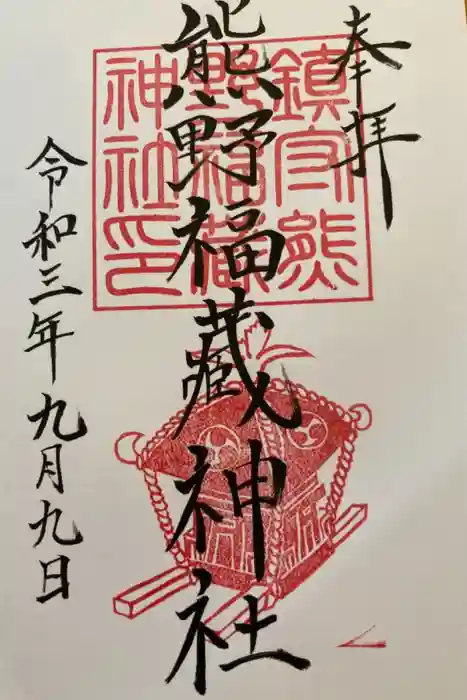 奉拝
熊野福藏神社
令和三年九月九日
鎮守熊
野福藏
神社印